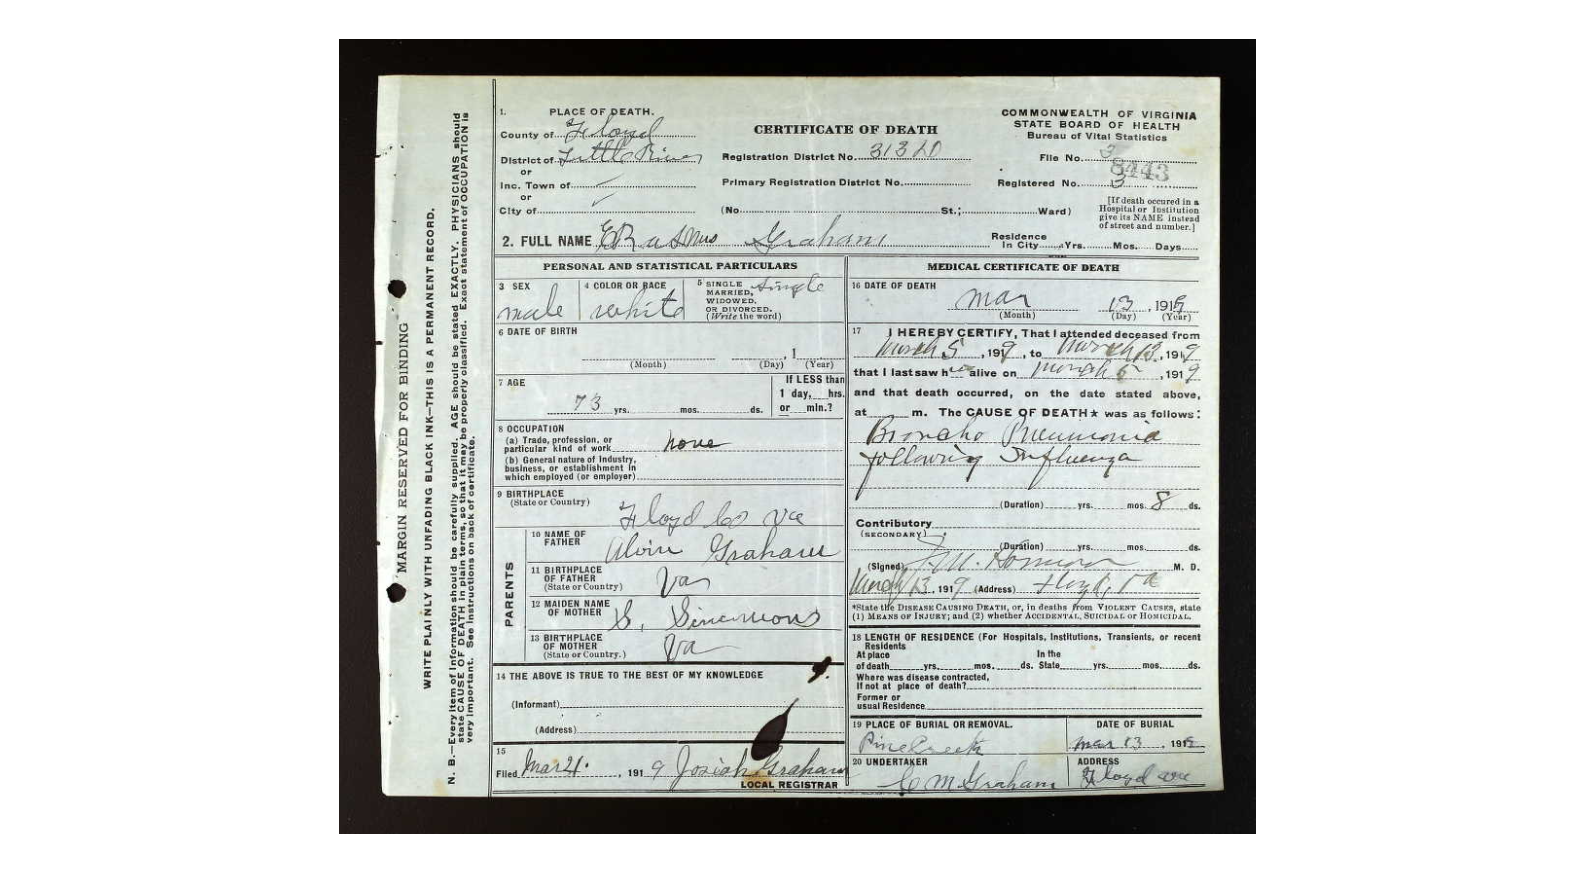 MARGIN RESERVED FOR BINDING
WRITE PLAINLY WITH UNFADING BLACK INK—THIS IS A PERMANENT RECORD.
N. B.—Every item of information should be carefully supplied. AGE should be stated EXACTLY. PHYSICIANS should
state CAUSE OF DEATH in plain terms, so that it may be properly classified. Exact statement of OCCUPATION is
very important. See instructions on back of certificate.
1. PLACE OF DEATH.
County of Floyd
District of Little River
or
Inc. Town of
or
City of
CERTIFICATE OF DEATH
Registration District No. 3132D
Primary Registration District No.
(No. St.; Ward)
COMMONWEALTH OF VIRGINIA
STATE BOARD OF HEALTH
Bureau of Vital Statistics
File No. 3
8443
Registered No. 3
[If death occured in a
Hospital or Institution
give its NAME instead
of street and number.]
2. FULL NAME Erasmus Graham
Residence
In City Yrs. Mos. Days
PERSONAL AND STATISTICAL PARTICULARS
3 SEX
male
4 COLOR OR RACE
white
5 SINGLE
MARRIED,
WIDOWED.
OR DIVORCED.
(Write the word)
single
6 DATE OF BIRTH
, 1
(Month) (Day) (Year)
7 AGE
73 yrs. mos. ds.
If LESS than
1 day, hrs.
or min.?
8 OCCUPATION
(a) Trade, profession, or
particular kind of work none
(b) General nature of industry,
business, or establishment in
which employed (or employer)
9 BIRTHPLACE
(State or Country)
Floyd Co Va
PARENTS
10 NAME OF
FATHER
Alvin Graham
11 BIRTHPLACE
OF FATHER
(State or Country)
Va
12 MAIDEN NAME
OF MOTHER
S. Simmons
13 BIRTHPLACE
OF MOTHER
(State or Country.)
Va
14 THE ABOVE IS TRUE TO THE BEST OF MY KNOWLEDGE
(Informant)
(Address)
15
Filed Mar 21. , 1919 Josiah Graham
LOCAL REGISTRAR
MEDICAL CERTIFICATE OF DEATH
16 DATE OF DEATH
Mar 13 , 1919
(Month) (Day) (Year)
17 I HEREBY CERTIFY, That I attended deceased from
March 5 , 1919, to March 13, 1919
that I last saw him alive on March 5 , 1919
and that death occurred, on the date stated above,
at m. The CAUSE OF DEATH★ was as follows:
Broncho Pneumonia
following Influenza
(Duration) yrs. mos. 8 ds.
Contributory
(SECONDARY)
(Duration) yrs. mos. ds.
(Signed) M. D.
March 13, 1919 (Address) Floyd, Va
*State the DISEASE CAUSING DEATH, or, in deaths from VIOLENT CAUSES, state
(1) MEANS OF INJURY; and (2) whether ACCIDENTAL, SUICIDAL or HOMICIDAL.
18 LENGTH OF RESIDENCE (For Hospitals, Institutions, Transients, or recent
Residents
At place In the
of death yrs. mos. ds. State yrs. mos. ds.
Where was disease contracted,
If not at place of death?
Former or
usual Residence
19 PLACE OF BURIAL OR REMOVAL.
Pine Creek
DATE OF BURIAL
Mar 13 , 1919
20 UNDERTAKER
C M Graham
ADDRESS
Floyd Va